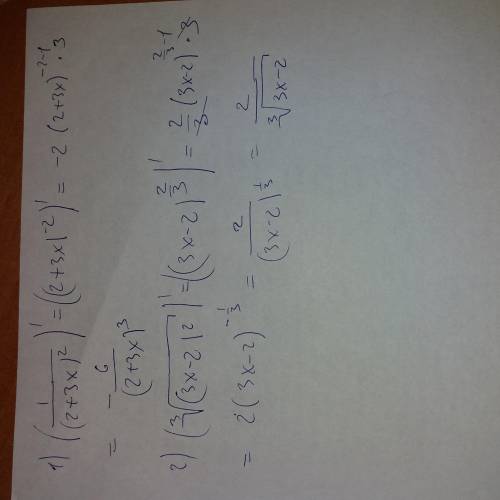 1) (1/(2+3x)²)' = ((2+3x)⁻²)' = -2 (2+3x)⁻²⁻¹ · 3
= - 6/(2+3x)³
2) (∛(3x-2)²)' = ((3x-2)^(2/3))' = 2/3 (3x-2)^(2/3-1) · 3
= 2(3x-2)^(-1/3) = 2/(3x-2)^(1/3) = 2/∛(3x-2)